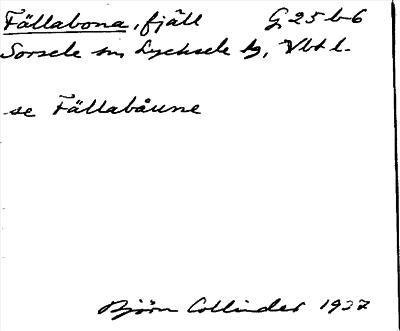 Fällabona, fjäll G 25 b-6
Sorsele sn Lycksele lg, Vbt l.
se Fällabåune
Björn Collinder 1937